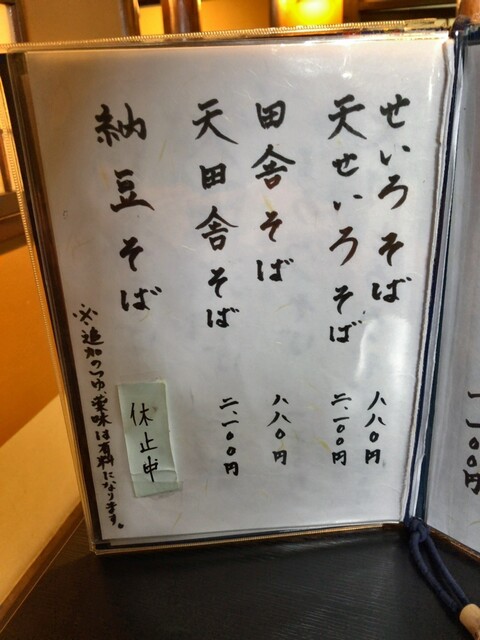 せいろそば 八八〇円
天せいろそば 二、一〇〇円
田舎そば 八八〇円
天田舎そば 二、一〇〇円
納豆そば 休止中
※追加のつゆ、薬味は有料になります。
一〇円